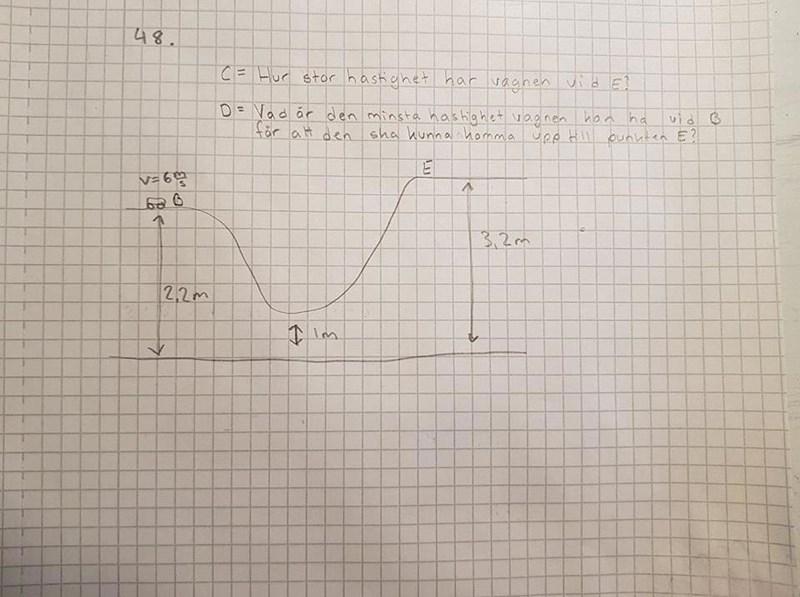 48.
C = Hur stor hastighet har vagnen vid E?
D = Vad är den minsta hastighet vagnen kan ha vid B
för att den ska kunna komma upp till punkten E?
E
v=6 m/s
B
3,2m
2,2m
1m